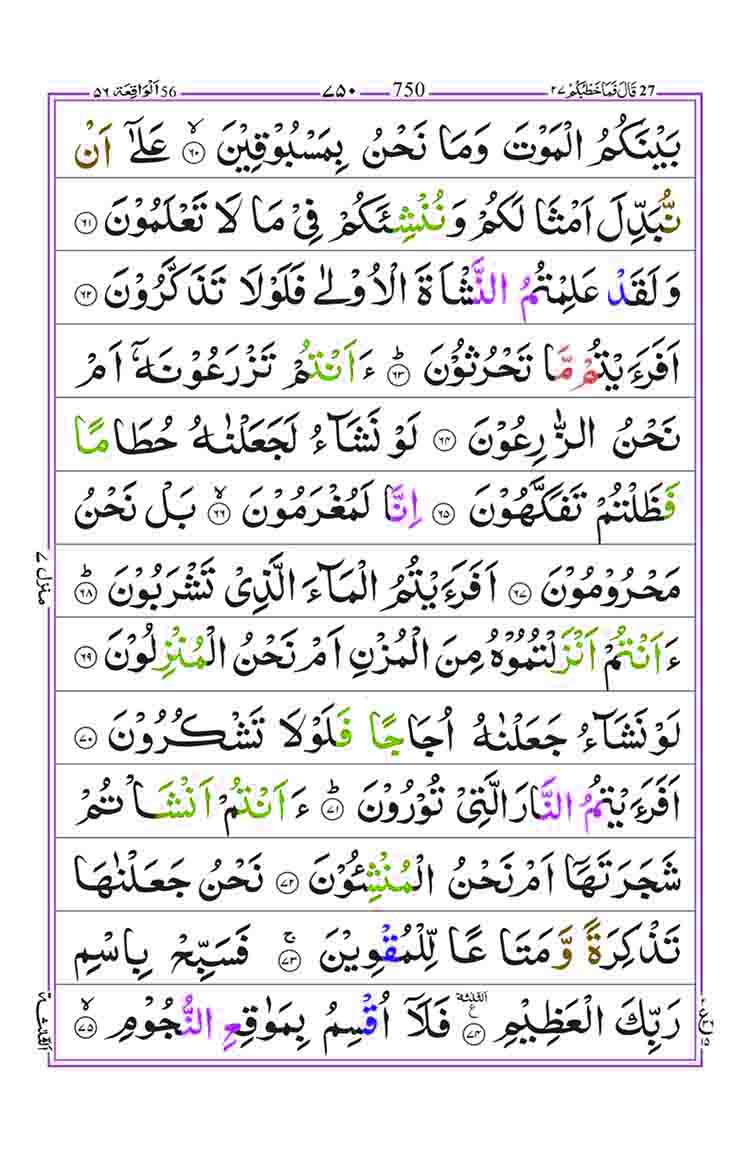 27 قَالَ فَمَا خَطْبُكُمْ ٢٧ 750 ٧٥٠ 56 اَلْوَاقِعَة ٥٦
بَيْنَكُمُ الْمَوْتَ وَمَا نَحْنُ بِمَسْبُوْقِيْنَ ۙ﴿٦٠﴾ عَلٰٓى اَنْ
نُّبَدِّلَ اَمْثَالَكُمْ وَنُنْشِئَكُمْ فِيْ مَا لَا تَعْلَمُوْنَ ﴿٦١﴾
وَلَقَدْ عَلِمْتُمُ النَّشْاَةَ الْاُوْلٰى فَلَوْلَا تَذَكَّرُوْنَ ﴿٦٢﴾
اَفَرَءَيْتُمْ مَّا تَحْرُثُوْنَ ؕ﴿٦٣﴾ ءَاَنْتُمْ تَزْرَعُوْنَهٗۤ اَمْ
نَحْنُ الزّٰرِعُوْنَ ﴿٦٤﴾ لَوْ نَشَآءُ لَجَعَلْنٰهُ حُطَامًا
فَظَلْتُمْ تَفَكَّهُوْنَ ﴿٦٥﴾ اِنَّا لَمُغْرَمُوْنَ ۙ﴿٦٦﴾ بَلْ نَحْنُ
مَحْرُوْمُوْنَ ﴿٦٧﴾ اَفَرَءَيْتُمُ الْمَآءَ الَّذِيْ تَشْرَبُوْنَ ؕ﴿٦٨﴾
ءَاَنْتُمْ اَنْزَلْتُمُوْهُ مِنَ الْمُزْنِ اَمْ نَحْنُ الْمُنْزِلُوْنَ ﴿٦٩﴾
لَوْ نَشَآءُ جَعَلْنٰهُ اُجَاجًا فَلَوْلَا تَشْكُرُوْنَ ﴿٧٠﴾
اَفَرَءَيْتُمُ النَّارَ الَّتِيْ تُوْرُوْنَ ؕ﴿٧١﴾ ءَاَنْتُمْ اَنْشَاْتُمْ
شَجَرَتَهَاۤ اَمْ نَحْنُ الْمُنْشِئُوْنَ ﴿٧٢﴾ نَحْنُ جَعَلْنٰهَا
تَذْكِرَةً وَّمَتَاعًا لِّلْمُقْوِيْنَ ۚ﴿٧٣﴾ فَسَبِّحْ بِاسْمِ
رَبِّكَ الْعَظِيْمِ ﴿٧٤﴾ فَلَآ اُقْسِمُ بِمَوٰقِعِ النُّجُوْمِ ۙ﴿٧٥﴾
منزل ٧
الثلثة